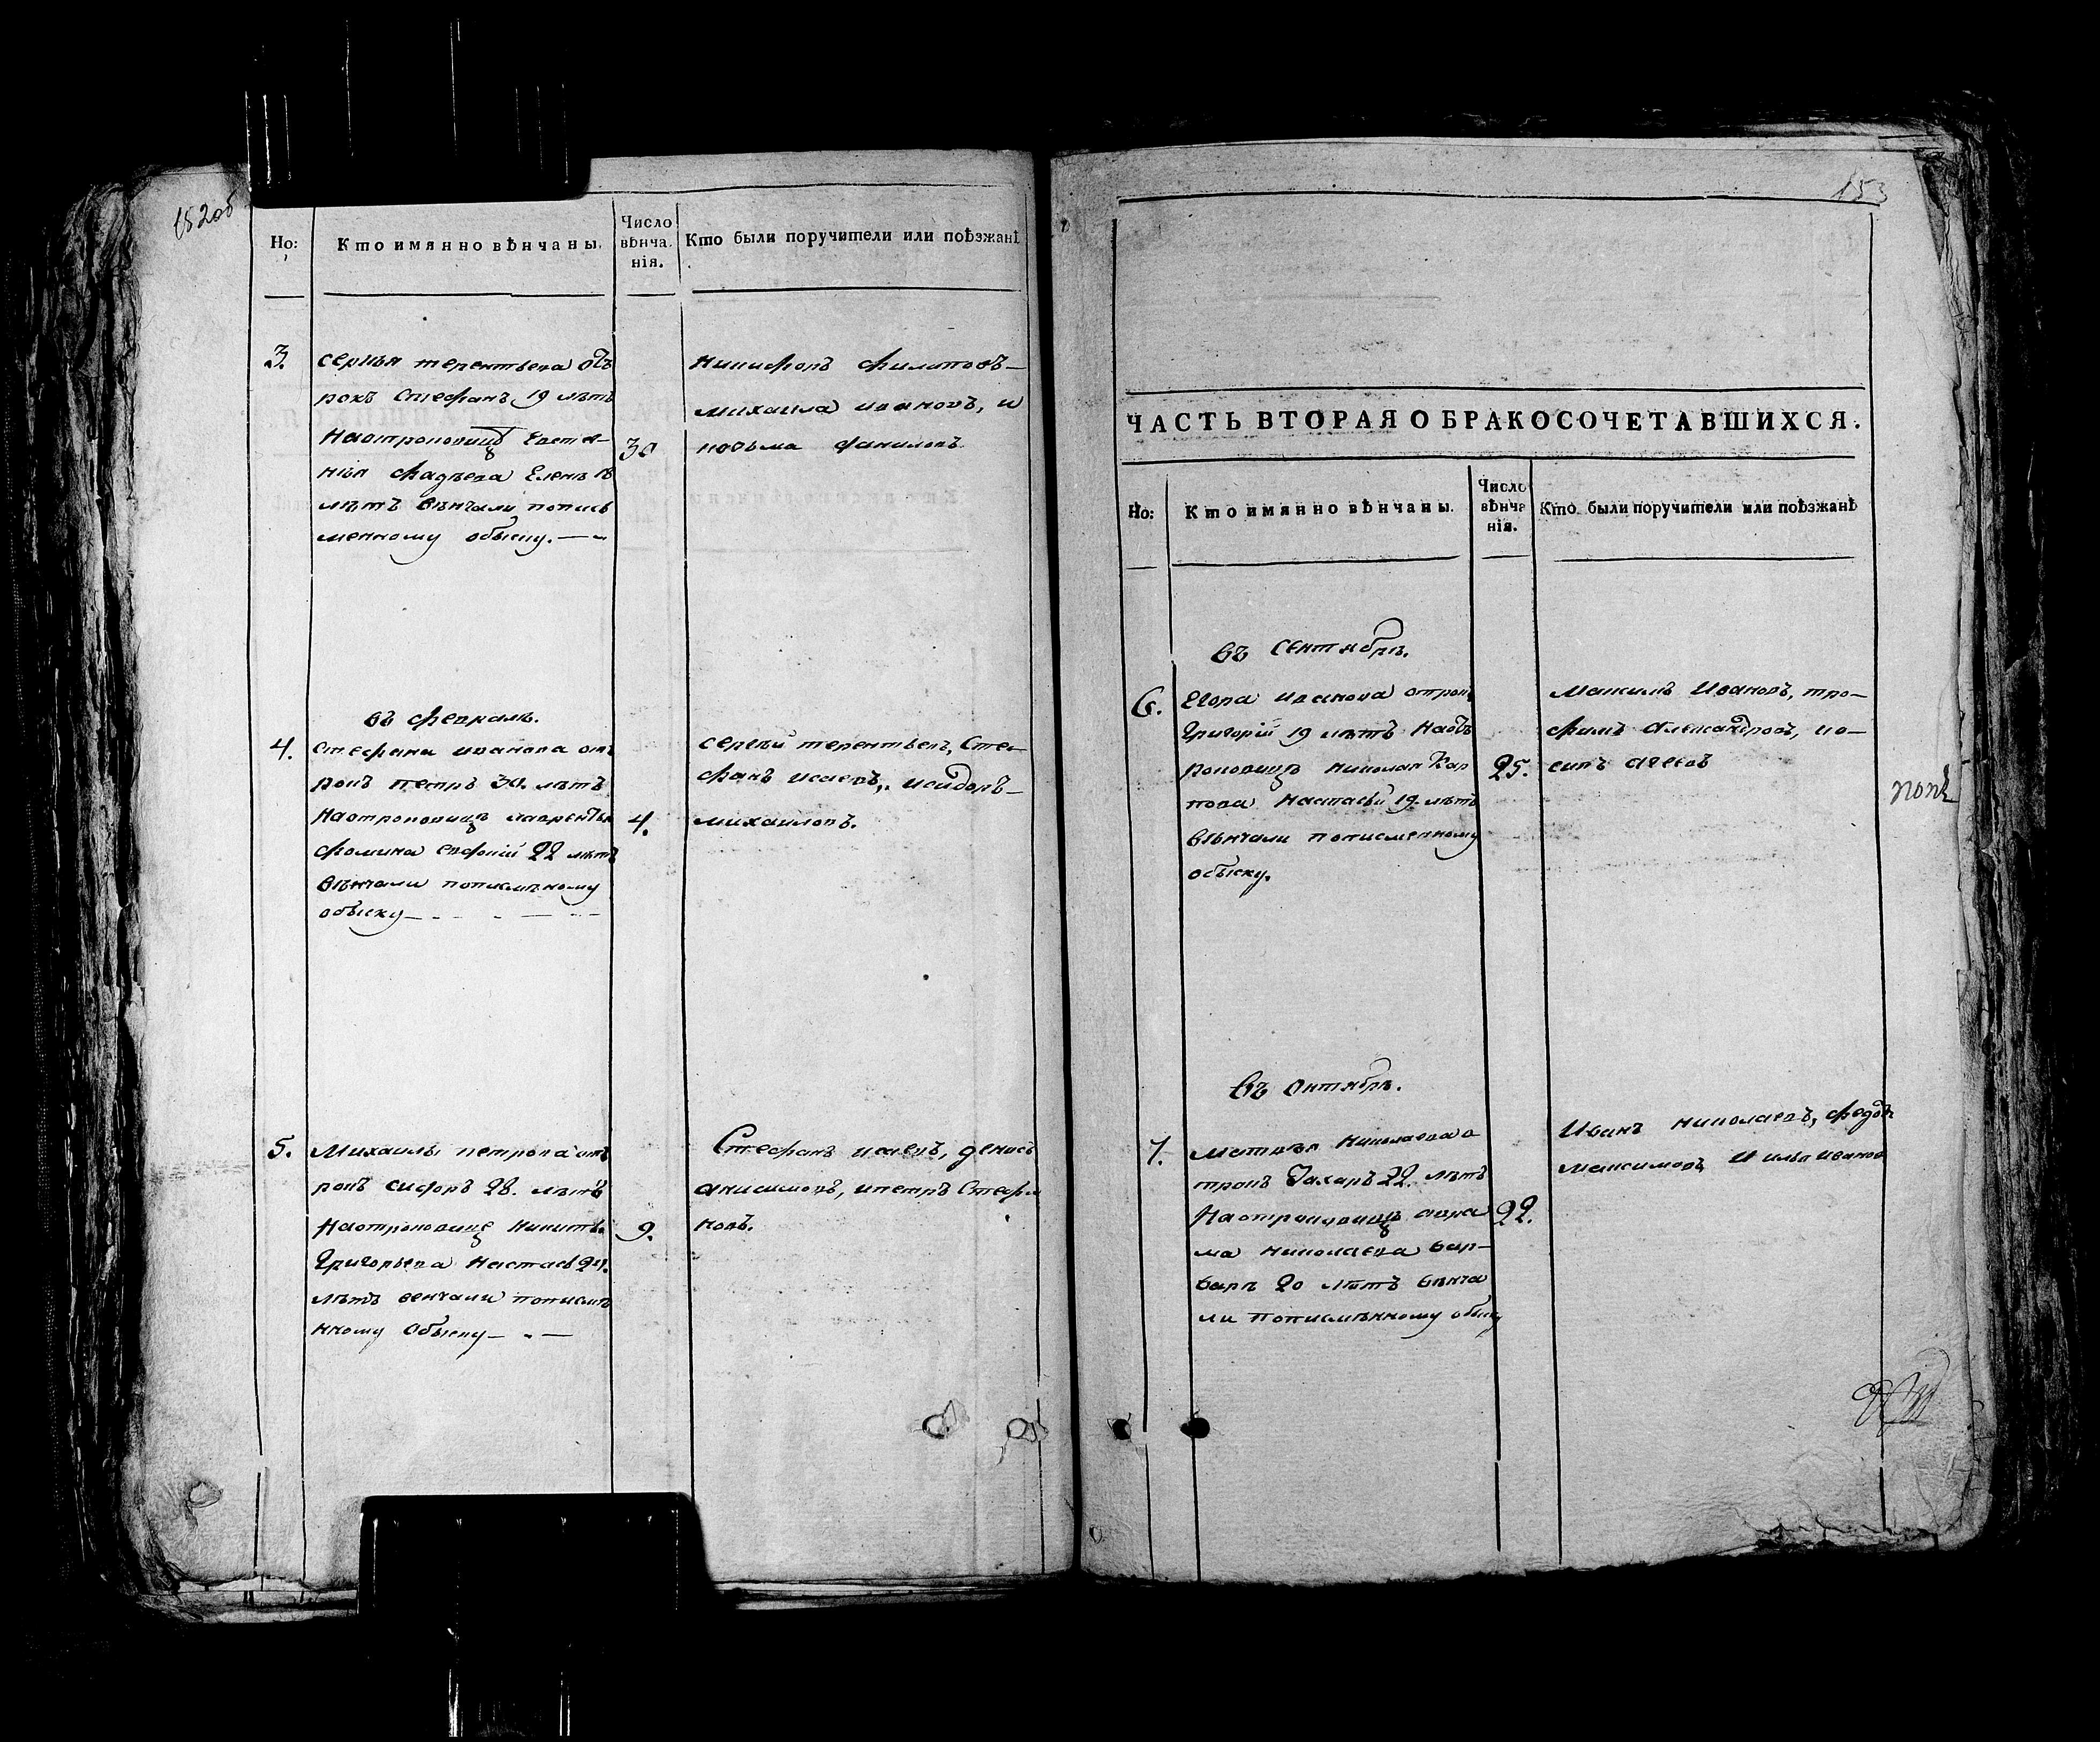 152об
Но:
Кто имянно вѣнчаны.
Число вѣнчанія.
Кто были поручители или поѣзжанѣ
3.
сергѣя терентьева от
рокъ Стефанъ 19 лѣтъ
Наотроковицѣ Евста-
ніи фадѣева Еленѣ 18
лѣтъ вѣнчали попись
менному обыску.
30
никифоръ филиповъ
михаила ивановъ, и
козьма даниловъ
въ февралѣ.
4.
Стефана иванова от
рокъ петръ 30. лѣтъ
Наотроковицѣ лаврентья
фомина 22 лѣтъ
вѣнчали пописмѣному
обыску
4.
сергѣй терентьевъ, Сте-
фанъ исаевъ, исидоръ
михаиловъ.
5.
Михаилы петрова от
рокъ сидоръ 28. лѣтъ
Наотроковице никиты
Григорьева Настась 21.
лѣтъ венчали пописмѣ
нному обыску
9.
Стефанъ исаевъ, денисъ
анисимовъ, ипетръ Стефа
новъ.
153
ЧАСТЬ ВТОРАЯ О БРАКОСОЧЕТАВШИХСЯ.
Но:
Кто имянно вѣнчаны.
Число вѣнчанія.
Кто были поручители или поѣзжанѣ
въ Сентябрѣ.
6.
Егора иванова отрокъ
Григорій 19 лѣтъ Наот
роковицѣ николая Кар
пова Настасьи 19. лѣтъ
вѣнчали пописменному
обыску.
25.
Максимъ Ивановъ, тро-
фимъ Александровъ, ио-
сипъ
попъ
въ Октябрѣ.
7.
матвѣя Николаева о
трокъ Захаръ 22. лѣтъ
Наотроковицѣ авра
ма николаева вар-
варѣ 20 лѣтъ вѣнча
ли пописмѣнному обыску
22.
Иванъ николаевъ, федотъ
максимовъ И илья иванов